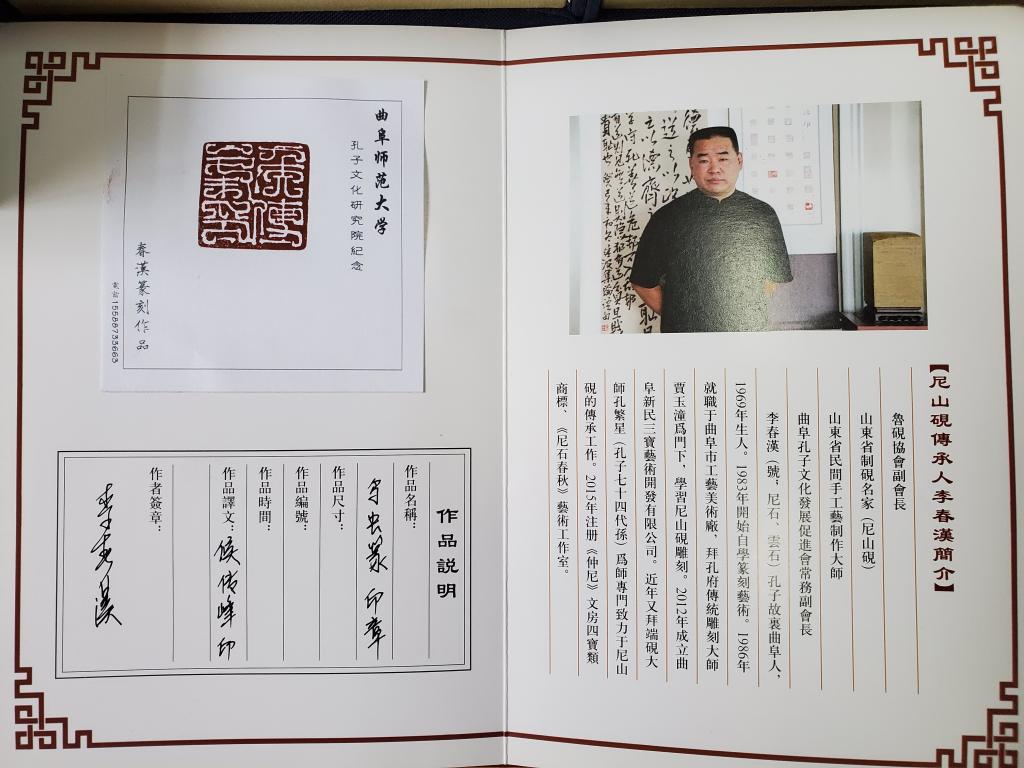 【尼山硯傳承人李春漢簡介】
魯硯協會副會長
山東省制硯名家（尼山硯）
山東省民間手工藝制作大師
曲阜孔子文化發展促進會常務副會長
李春漢（號；尼石、雲石）孔子故裏曲阜人，
1969年生人。1983年開始自學篆刻藝術。1986年
就職于曲阜市工藝美術廠，拜孔府傳統雕刻大師
賈玉潼爲門下，學習尼山硯雕刻。2012年成立曲
阜新民三寶藝術開發有限公司。近年又拜端硯大
師孔繁星（孔子七十四代孫）爲師專門致力于尼山
硯的傳承工作。2015年注册《仲尼》文房四寶類
商標、《尼石春秋》藝術工作室。
曲阜师范大学
孔子文化研究院紀念
春漢篆刻作品
電話15588733663
作品説明
作品名稱：鸟虫篆印章
作品尺寸：
作品編號：
作品時間：
作品譯文：侯传峰印
作者簽章：李春漢